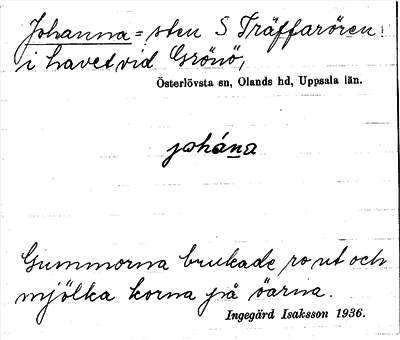 Johanna = sten S Träffarören
i havet vid Grönö,
Österlövsta sn, Olands hd, Uppsala län.
johána
Gummorna brukade ro ut och
mjölka korna på öarna.
Ingegärd Isaksson 1936.